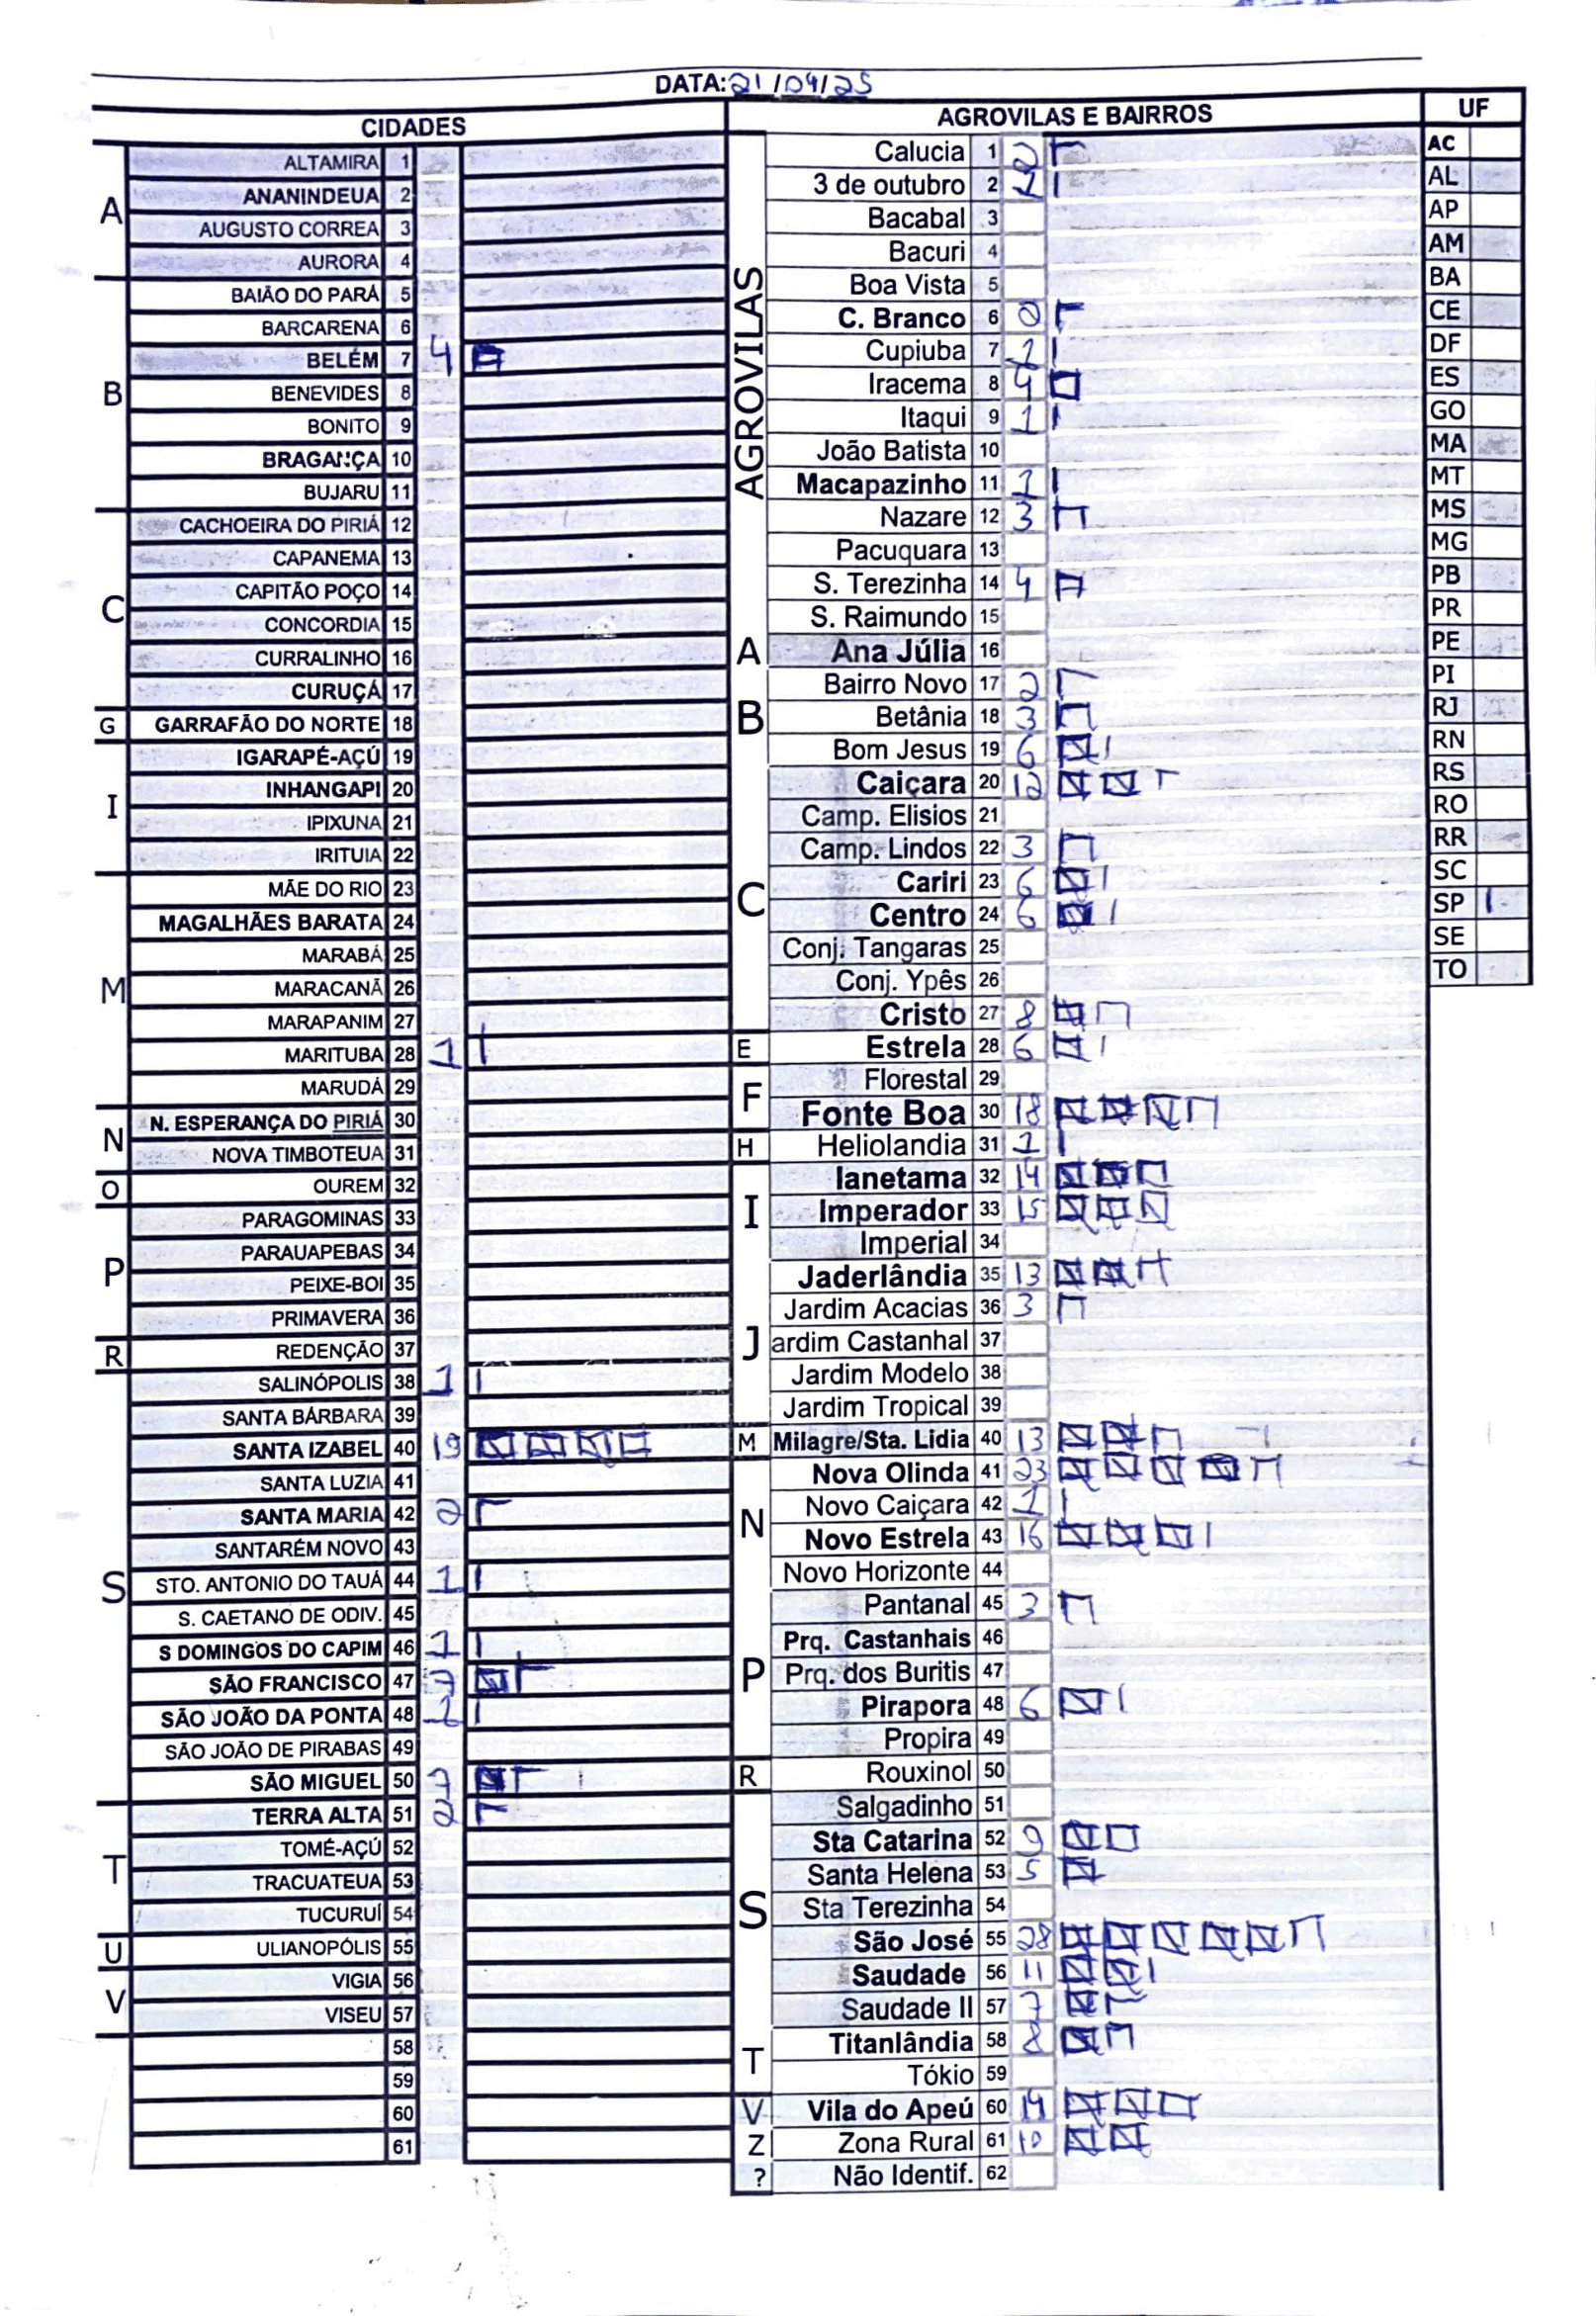 DATA: 21/04/25
CIDADES
A
ALTAMIRA 1
ANANINDEUA 2
AUGUSTO CORREA 3
AURORA 4
B
BAIÃO DO PARÁ 5
BARCARENA 6
BELÉM 7 4
BENEVIDES 8
BONITO 9
BRAGANÇA 10
BUJARU 11
C
CACHOEIRA DO PIRIÁ 12
CAPANEMA 13
CAPITÃO POÇO 14
CONCORDIA 15
CURRALINHO 16
CURUÇÁ 17
G
GARRAFÃO DO NORTE 18
I
IGARAPÉ-AÇÚ 19
INHANGAPI 20
IPIXUNA 21
IRITUIA 22
M
MÃE DO RIO 23
MAGALHÃES BARATA 24
MARABÁ 25
MARACANÃ 26
MARAPANIM 27
MARITUBA 28 1
MARUDÁ 29
N
N. ESPERANÇA DO PIRIÁ 30
NOVA TIMBOTEUA 31
O
OUREM 32
P
PARAGOMINAS 33
PARAUAPEBAS 34
PEIXE-BOI 35
PRIMAVERA 36
R
REDENÇÃO 37
S
SALINÓPOLIS 38 1
SANTA BÁRBARA 39
SANTA IZABEL 40 19
SANTA LUZIA 41
SANTA MARIA 42 2
SANTARÉM NOVO 43
STO. ANTONIO DO TAUÁ 44 1
S. CAETANO DE ODIV. 45
S DOMINGOS DO CAPIM 46 1
SÃO FRANCISCO 47 7
SÃO JOÃO DA PONTA 48 1
SÃO JOÃO DE PIRABAS 49
SÃO MIGUEL 50 7
T
TERRA ALTA 51 2
TOMÉ-AÇÚ 52
TRACUATEUA 53
TUCURUÍ 54
U
ULIANOPÓLIS 55
V
VIGIA 56
VISEU 57
58
59
60
61
AGROVILAS E BAIRROS
AGROVILAS
Calucia 1 2
3 de outubro 2 1
Bacabal 3
Bacuri 4
Boa Vista 5
C. Branco 6 2
Cupiuba 7 1
Iracema 8 4
Itaqui 9 1
João Batista 10
Macapazinho 11 1
Nazare 12 3
Pacuquara 13
S. Terezinha 14 4
S. Raimundo 15
A
Ana Júlia 16
B
Bairro Novo 17 2
Betânia 18 3
Bom Jesus 19 6
C
Caiçara 20 12
Camp. Elisios 21
Camp. Lindos 22 3
Cariri 23 6
Centro 24 6
Conj. Tangaras 25
Conj. Ypês 26
Cristo 27 8
E
Estrela 28 6
F
Florestal 29
Fonte Boa 30 18
H
Heliolandia 31 1
I
Ianetama 32 14
Imperador 33 15
Imperial 34
J
Jaderlândia 35 13
Jardim Acacias 36 3
ardim Castanhal 37
Jardim Modelo 38
Jardim Tropical 39
M
Milagre/Sta. Lidia 40 13
N
Nova Olinda 41 23
Novo Caiçara 42 1
Novo Estrela 43 16
Novo Horizonte 44
P
Pantanal 45 3
Prq. Castanhais 46
Prq. dos Buritis 47
Pirapora 48 6
Propira 49
R
Rouxinol 50
S
Salgadinho 51
Sta Catarina 52 9
Santa Helena 53 5
Sta Terezinha 54
São José 55 28
Saudade 56 11
Saudade II 57 7
T
Titanlândia 58 8
Tókio 59
V
Vila do Apeú 60 14
Z
Zona Rural 61 10
?
Não Identif. 62
UF
AC
AL
AP
AM
BA
CE
DF
ES
GO
MA
MT
MS
MG
PB
PR
PE
PI
RJ
RN
RS
RO
RR
SC
SP 1
SE
TO